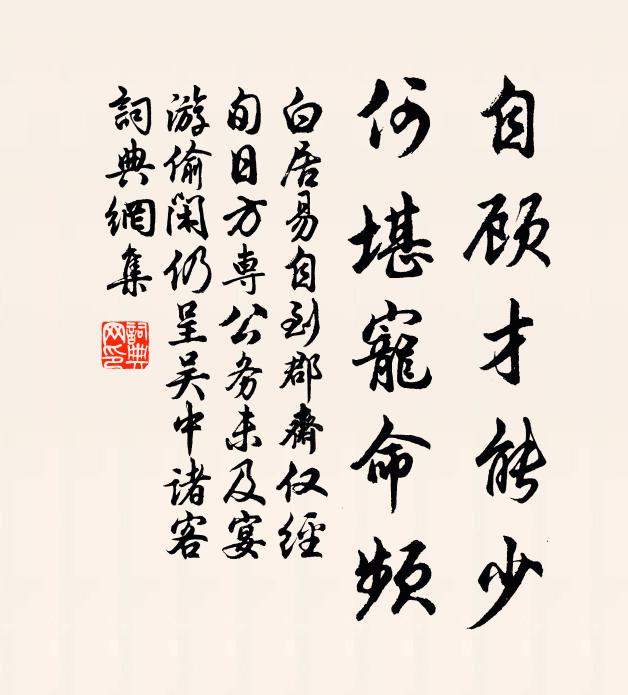 自顾才能少
何堪寵命频
白居易自到郡齋仅經
旬日方専公务未及宴
游偷闲仍呈吴中诸客
詞典網集
詞典網印